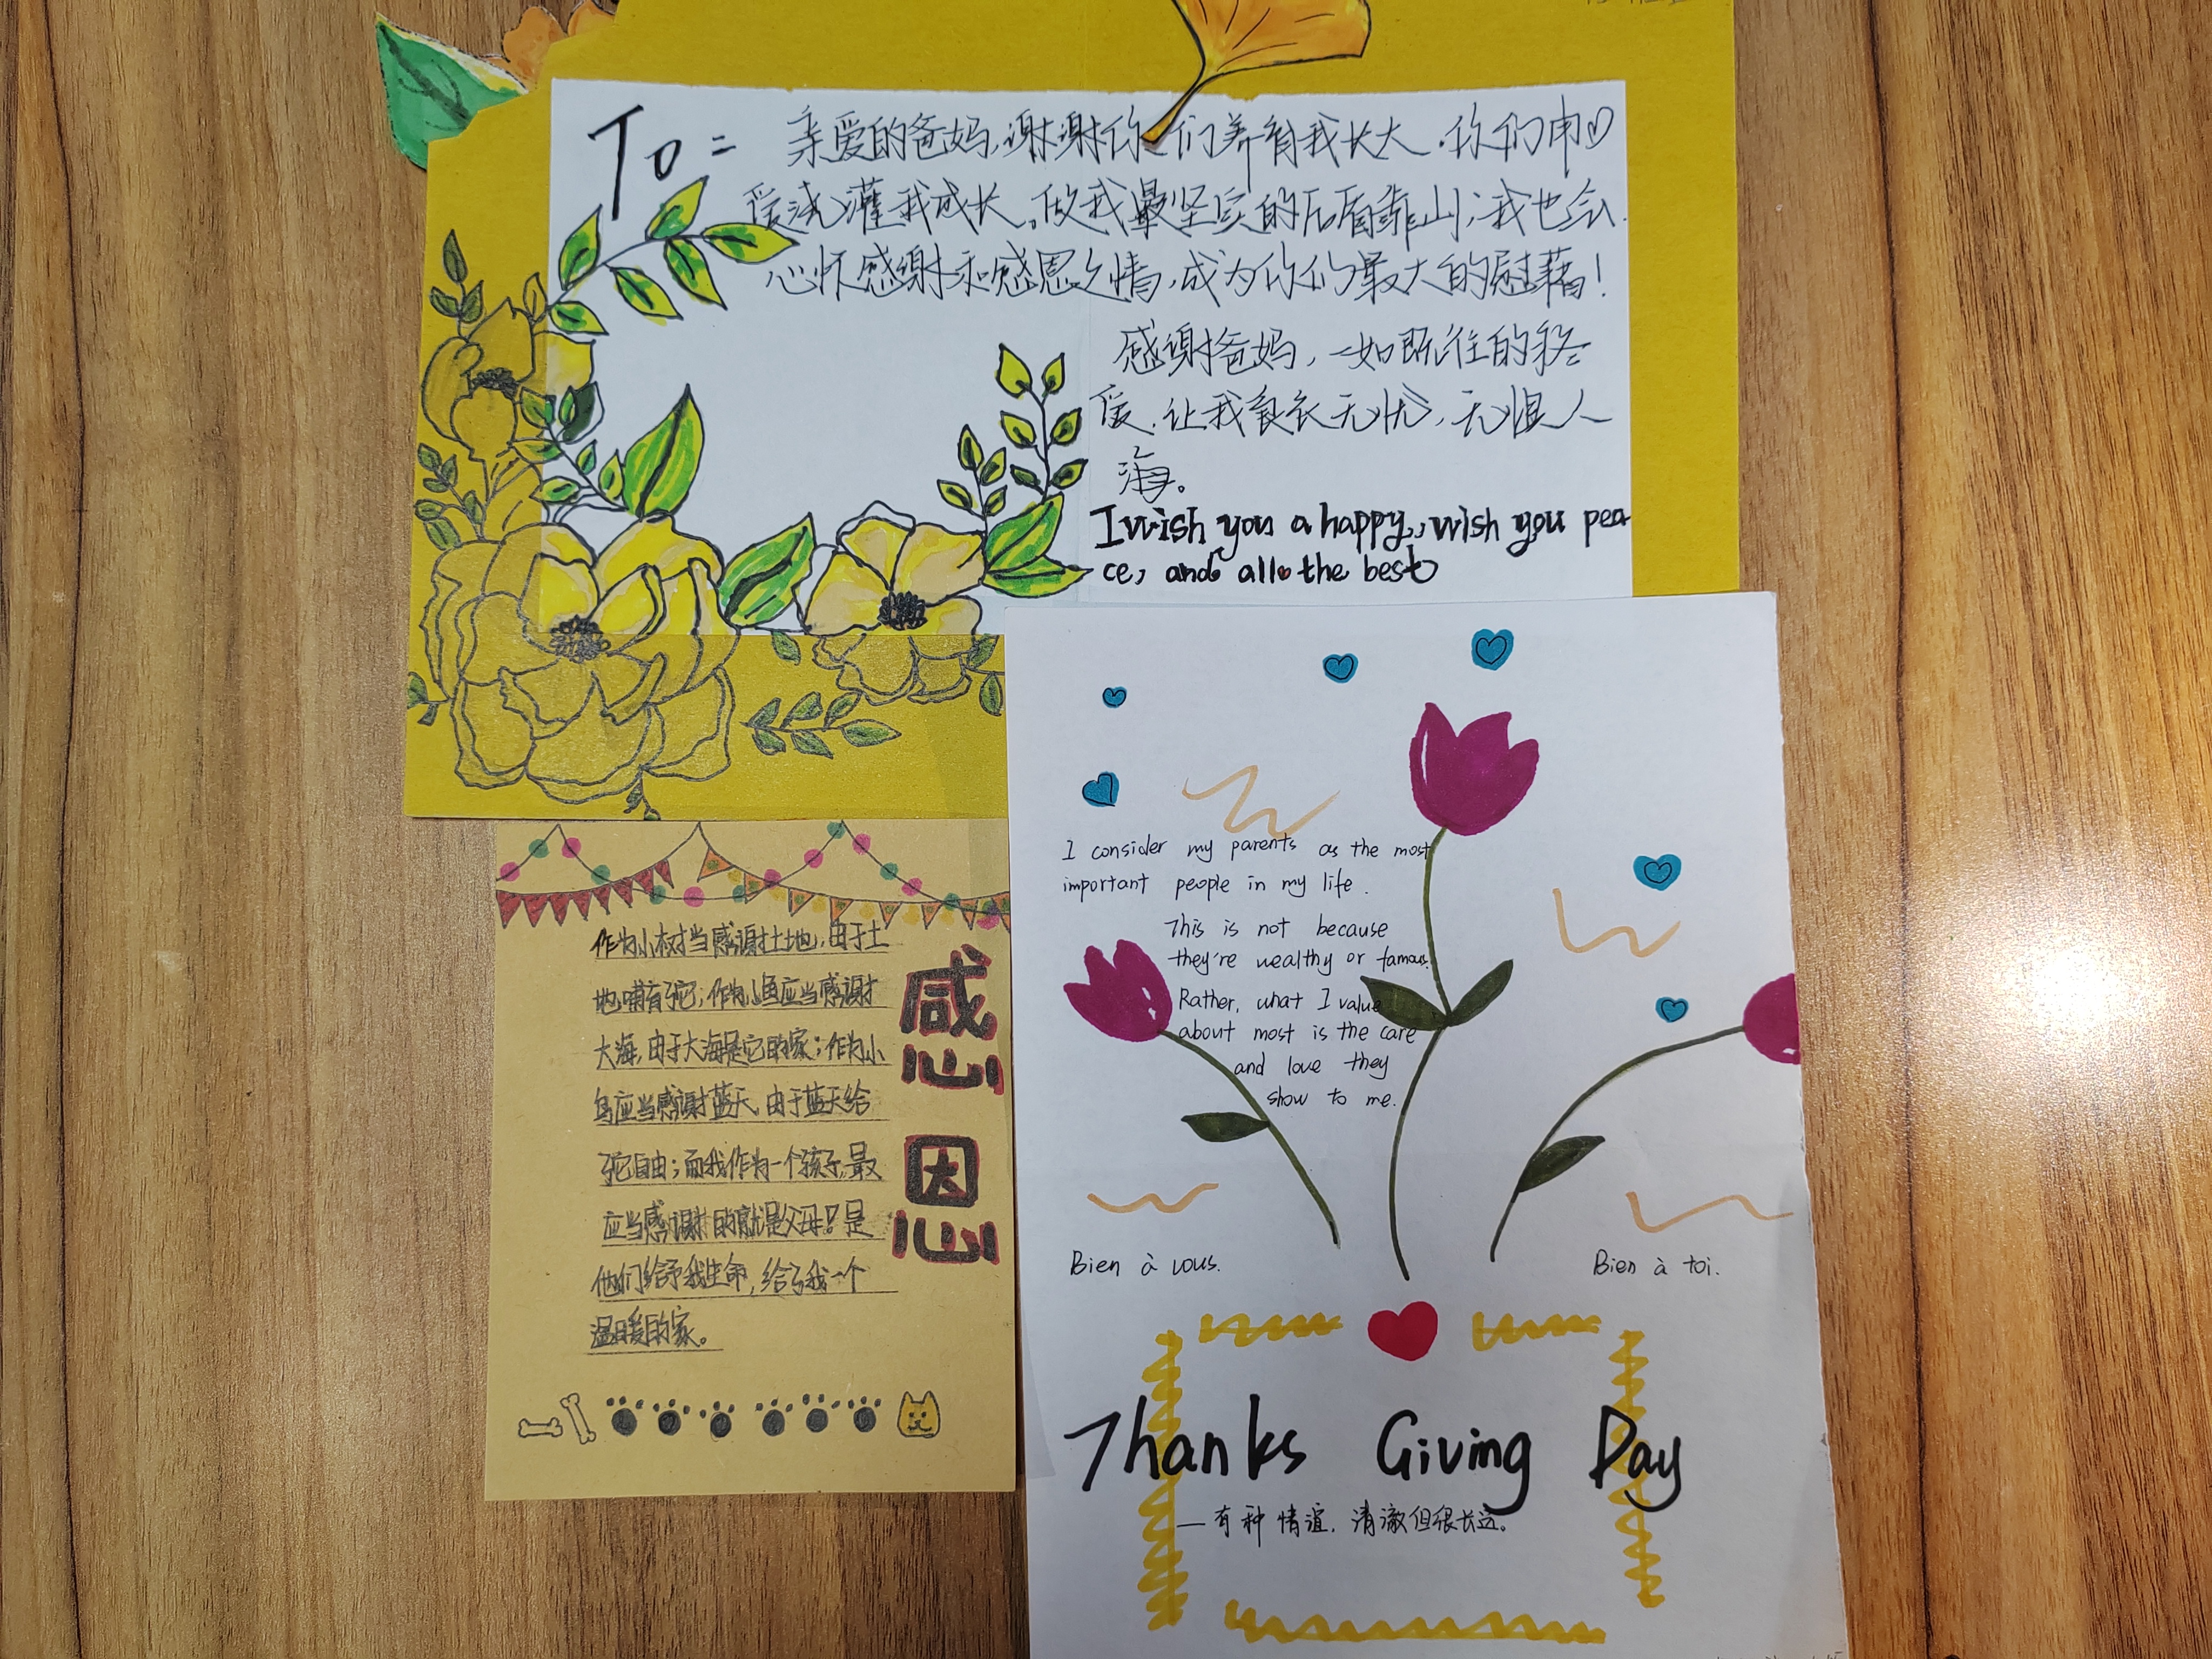 To:
亲爱的爸妈,谢谢你们养育我长大,你们用♡
爱浇灌我成长,做我最坚实的后盾靠山;我也会
心怀感谢和感恩之情,成为你们最大的慰藉!
感谢爸妈,一如既往的疼
爱,让我衣无忧,无惧人
海。
I wish you a happy, wish you pea
ce, and all the best
作为小树当感谢土地,由于土
地哺育它;作为小鱼应当感谢
大海,由于大海是它的家;作为小
鸟应当感谢蓝天,由于蓝天给
它自由;而我作为一个孩子,最
应当感谢的就是父母!是
他们给予我生命,给了我一个
温暖的家。
感恩
I consider my parents as the most
important people in my life.
This is not because
they're wealthy or famous.
Rather, what I value
about most is the care
and love they
show to me.
Bien à vous.
Bien à toi.
Thanks Giving Day
—有种情谊,清澈但很长远。